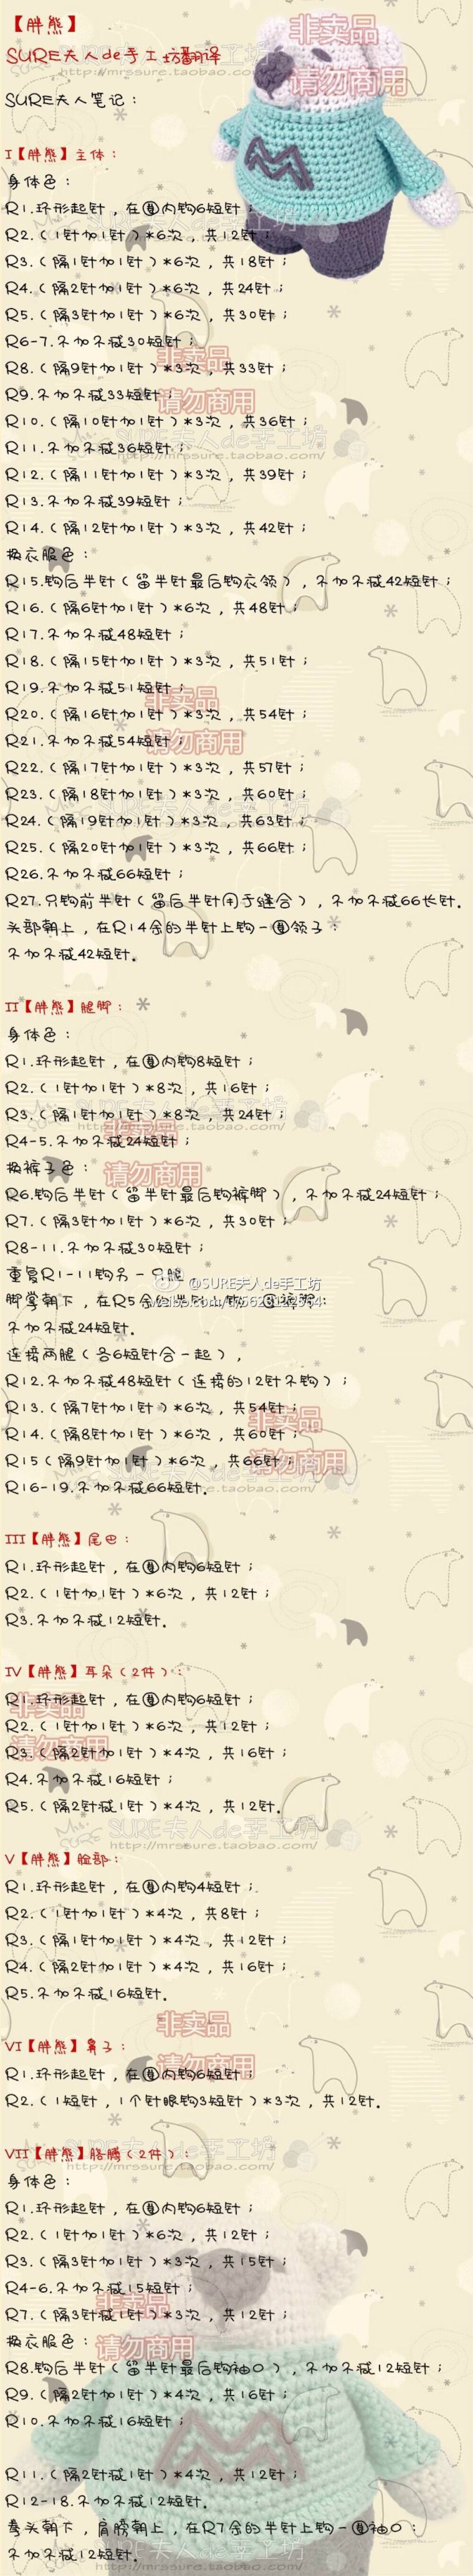 【胖熊】
非卖品
请勿商用
SURE夫人de手工坊翻译
http://mrssure.taobao.com/
SURE夫人笔记：
I【胖熊】主体：
身体色：
R1.环形起针，在圈内钩6短针；
R2.（1针加1针）*6次，共12针；
R3.（隔1针加1针）*6次，共18针；
R4.（隔2针加1针）*6次，共24针；
R5.（隔3针加1针）*6次，共30针；
R6-7.不加不减30短针；
非卖品
R8.（隔9针加1针）*3次，共33针；
R9.不加不减33短针；
请勿商用
R10.（隔10针加1针）*3次，共36针；
SURE夫人de手工坊
R11.不加不减36短针；
http://mrssure.taobao.com/
R12.（隔11针加1针）*3次，共39针；
R13.不加不减39短针；
R14.（隔12针加1针）*3次，共42针；
换衣服色：
R15.钩后半针（留半针最后钩衣领），不加不减42短针；
R16.（隔6针加1针）*6次，共48针；
R17.不加不减48短针；
R18.（隔15针加1针）*3次，共51针；
R19.不加不减51短针；
非卖品
R20.（隔16针加1针）*3次，共54针；
R21.不加不减54短针；
请勿商用
R22.（隔17针加1针）*3次，共57针；
R23.（隔18针加1针）*3次，共60针；
R24.（隔19针加1针）*3次，共63针；
R25.（隔20针加1针）*3次，共66针；
R26.不加不减66短针；
R27.只钩前半针（留后半针用于缝合），不加不减66长针。
头部朝上，在R14余的半针上钩一圈领子：
不加不减42短针。
II【胖熊】腿脚：
身体色：
R1.环形起针，在圈内钩8短针；
R2.（1针加1针）*8次，共16针；
R3.（隔1针加1针）*8次，共24针；
R4-5.不加不减24短针；
非卖品
换裤子色：
请勿商用
R6.钩后半针（留半针最后钩裤脚），不加不减24短针；
R7.（隔3针加1针）*6次，共30针；
R8-11.不加不减30短针；
重复R1-11钩另一只腿。
@SURE夫人de手工坊
脚掌朝下，在R5余的半针上钩一圈裤脚：
不加不减24短针。
连接两腿（各6短针合一起），
R12.不加不减48短针（连接的12针不钩）；
R13.（隔7针加1针）*6次，共54针；
非卖品
R14.（隔8针加1针）*6次，共60针；
R15（隔9针加1针）*6次，共66针；
请勿商用
R16-19.不加不减66短针。
III【胖熊】尾巴：
R1.环形起针，在圈内钩6短针；
R2.（1针加1针）*6次，共12针；
R3.不加不减12短针。
IV【胖熊】耳朵（2件）：
R1.环形起针，在圈内钩6短针；
非卖品
R2.（1针加1针）*6次，共12针；
请勿商用
R3.（隔2针加1针）*4次，共16针；
R4.不加不减16短针；
R5.（隔2针减1针）*4次，共12针。
SURE夫人de手工坊
http://mrssure.taobao.com/
V【胖熊】脸部：
R1.环形起针，在圈内钩4短针；
R2.（1针加1针）*4次，共8针；
R3.（隔1针加1针）*4次，共12针；
R4.（隔2针加1针）*4次，共16针；
R5.不加不减16短针。
非卖品
VI【胖熊】鼻子：
请勿商用
R1.环形起针，在圈内钩6短针；
R2.（1短针，1个针眼钩3短针）*3次，共12针。
VII【胖熊】胳膊（2件）：
SURE夫人de手工坊
http://mrssure.taobao.com/
身体色：
R1.环形起针，在圈内钩6短针；
R2.（1针加1针）*6次，共12针；
R3.（隔3针加1针）*3次，共15针；
R4-6.不加不减15短针；
非卖品
R7.（隔3针减1针）*3次，共12针；
换衣服色：
请勿商用
R8.钩后半针（留半针最后钩袖口），不加不减12短针；
R9.（隔2针加1针）*4次，共16针；
R10.不加不减16短针；
R11.（隔2针减1针）*4次，共12针；
R12-18.不加不减12短针。
拳头朝下，肩膀朝上，在R7余的半针上钩一圈袖口：
不加不减12短针。